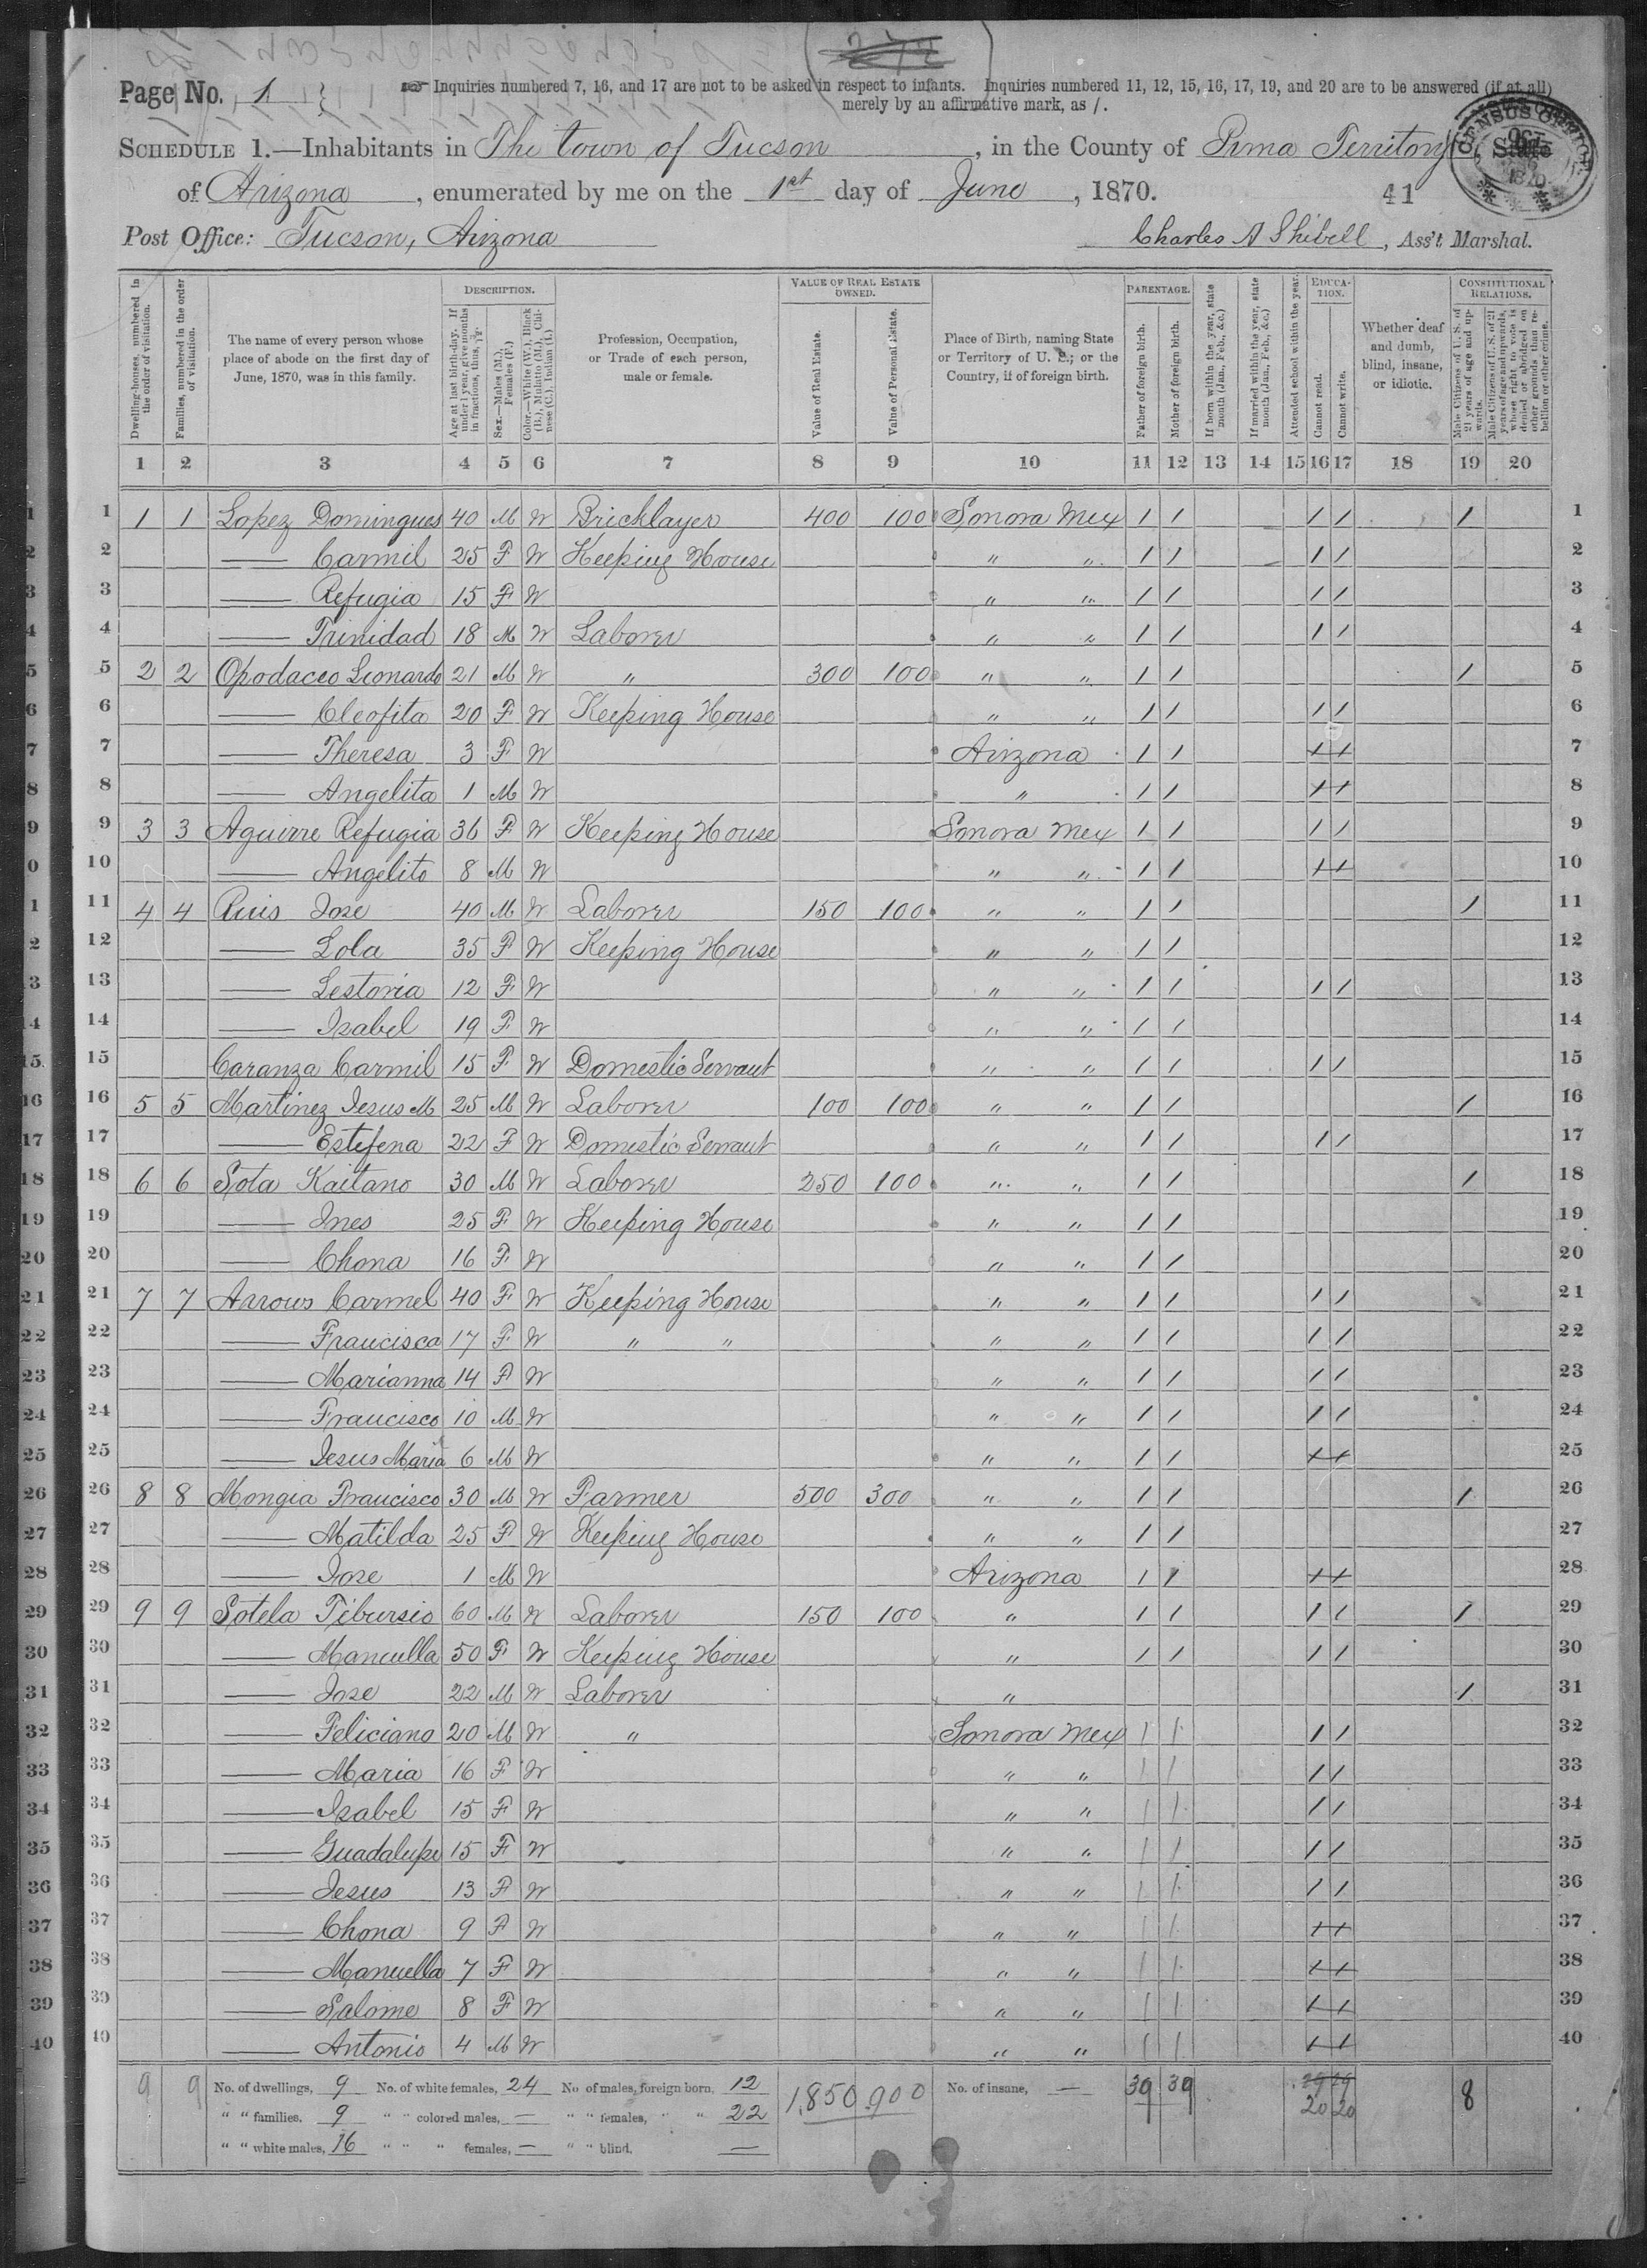 Page No. 1
Inquiries numbered 7, 16, and 17 are not to be asked in respect to infants. Inquiries numbered 11, 12, 15, 16, 17, 19, and 20 are to be answered (if at all)
merely by an affirmative mark, as /.
SCHEDULE 1.—Inhabitants in The town of Tucson, in the County of Pima Territory State
of Arizona, enumerated by me on the 1st day of June, 1870. 41
CENSUS OFFICE OCT 1870
Post Office: Tucson, Arizona Charles A Shibell, Ass't Marshal.
DESCRIPTION. VALUE OF REAL ESTATE OWNED. PARENTAGE. EDUCATION. CONSTITUTIONAL RELATIONS.
Dwelling-houses, numbered in the order of visitation.
Families, numbered in the order of visitation.
The name of every person whose place of abode on the first day of June, 1870, was in this family.
Age at last birth-day. If under 1 year, give months in fractions, thus, 3/12.
Sex.—Males (M.), Females (F.)
Color.—White (W.), Black (B.), Mulatto (M.), Chinese (C.), Indian (I.)
Profession, Occupation, or Trade of each person, male or female.
Value of Real Estate.
Value of Personal Estate.
Place of Birth, naming State or Territory of U. S.; or the Country, if of foreign birth.
Father of foreign birth.
Mother of foreign birth.
If born within the year, state month (Jan., Feb., &c.)
If married within the year, state month (Jan., Feb., &c.)
Attended school within the year.
Cannot read.
Cannot write.
Whether deaf and dumb, blind, insane, or idiotic.
Male Citizens of U. S. of 21 years of age and upwards.
Male Citizens of U. S. of 21 years of age and upwards, whose right to vote is denied or abridged on other grounds than rebellion or other crime.
1 2 3 4 5 6 7 8 9 10 11 12 13 14 15 16 17 18 19 20
1 1 1 Lopez Domingues 40 M W Bricklayer 400 100 Sonora Mex / / / / / 1
2 —— Carmil 25 F W Keeping House " " / / / / 2
3 —— Refugia 15 F W " " / / / / 3
4 —— Trinidad 18 M W Laborer " " / / / / 4
5 2 2 Opodaceo Leonardo 21 M W " 300 100 " " / / / 5
6 —— Cleofita 20 F W Keeping House " " / / / / 6
7 —— Theresa 3 F W Arizona / / / / 7
8 —— Angelita 1 M W " / / / / 8
9 3 3 Aguirre Refugia 36 F W Keeping House Sonora Mex / / / / 9
10 —— Angelito 8 M W " " / / / / 10
11 4 4 Ruis Jose 40 M W Laborer 150 100 " " / / / 11
12 —— Lola 35 F W Keeping House " " / / 12
13 —— Lestoria 12 F W " " / / / / 13
14 —— Isabel 19 F W " " / / 14
15 Caranza Carmil 15 F W Domestic Servant " " / / / / 15
16 5 5 Martinez Jesus M 25 M W Laborer 100 100 " " / / / 16
17 —— Estefena 22 F W Domestic Servant " " / / / / 17
18 6 6 Sota Kaitano 30 M W Laborer 250 100 " " / / / 18
19 —— Ines 25 F W Keeping House " " / / 19
20 —— Chona 16 F W " " / / 20
21 7 7 Arrous Carmel 40 F W Keeping House " " / / / / 21
22 —— Francisca 17 F W " " " " / / / / 22
23 —— Marianna 14 F W " " / / / / 23
24 —— Francisco 10 M W " " / / / / 24
25 —— Jesus Maria 6 M W " " / / / / 25
26 8 8 Mongia Francisco 30 M W Farmer 500 300 " " / / / 26
27 —— Matilda 25 F W Keeping House " " / / 27
28 —— Jose 1 M W Arizona / / / / 28
29 9 9 Sotela Tibursio 60 M W Laborer 150 100 " / / / / / 29
30 —— Manuella 50 F W Keeping House " / / / / 30
31 —— Jose 22 M W Laborer " / 31
32 —— Feliciano 20 M W " Sonora Mex / / / / 32
33 —— Maria 16 F W " " / / / / 33
34 —— Isabel 15 F W " " / / / / 34
35 —— Guadalupe 15 F W " " / / / / 35
36 —— Jesus 13 F W " " / / / / 36
37 —— Chona 9 F W " " / / / / 37
38 —— Manuella 7 F W " " / / / / 38
39 —— Salome 8 F W " " / / / / 39
40 —— Antonio 4 M W " " / / / / 40
9 9 No. of dwellings, 9 No. of white females, 24 No of males, foreign born, 12 1,850 900 No. of insane, — 39 39 29 29 8
" " families, 9 " " colored males, — " " females, " " 22 20 20
" " white males, 16 " " " females, — " " blind, —